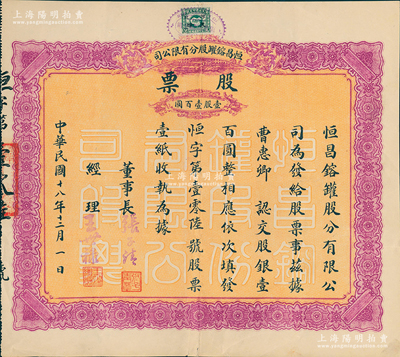 上海陽明拍賣
恒昌鎔罐股分有限公司
股票
壹股壹百圓
恒昌鎔罐股分有限公
司為發給股票事茲據
曹惠卿 認交股銀壹
百圓整相應依次填發
恒字第壹零陸號股票
壹紙收執為據
董事長
經理
中華民國十八年十二月一日
恒字第
號
上海陽明拍賣